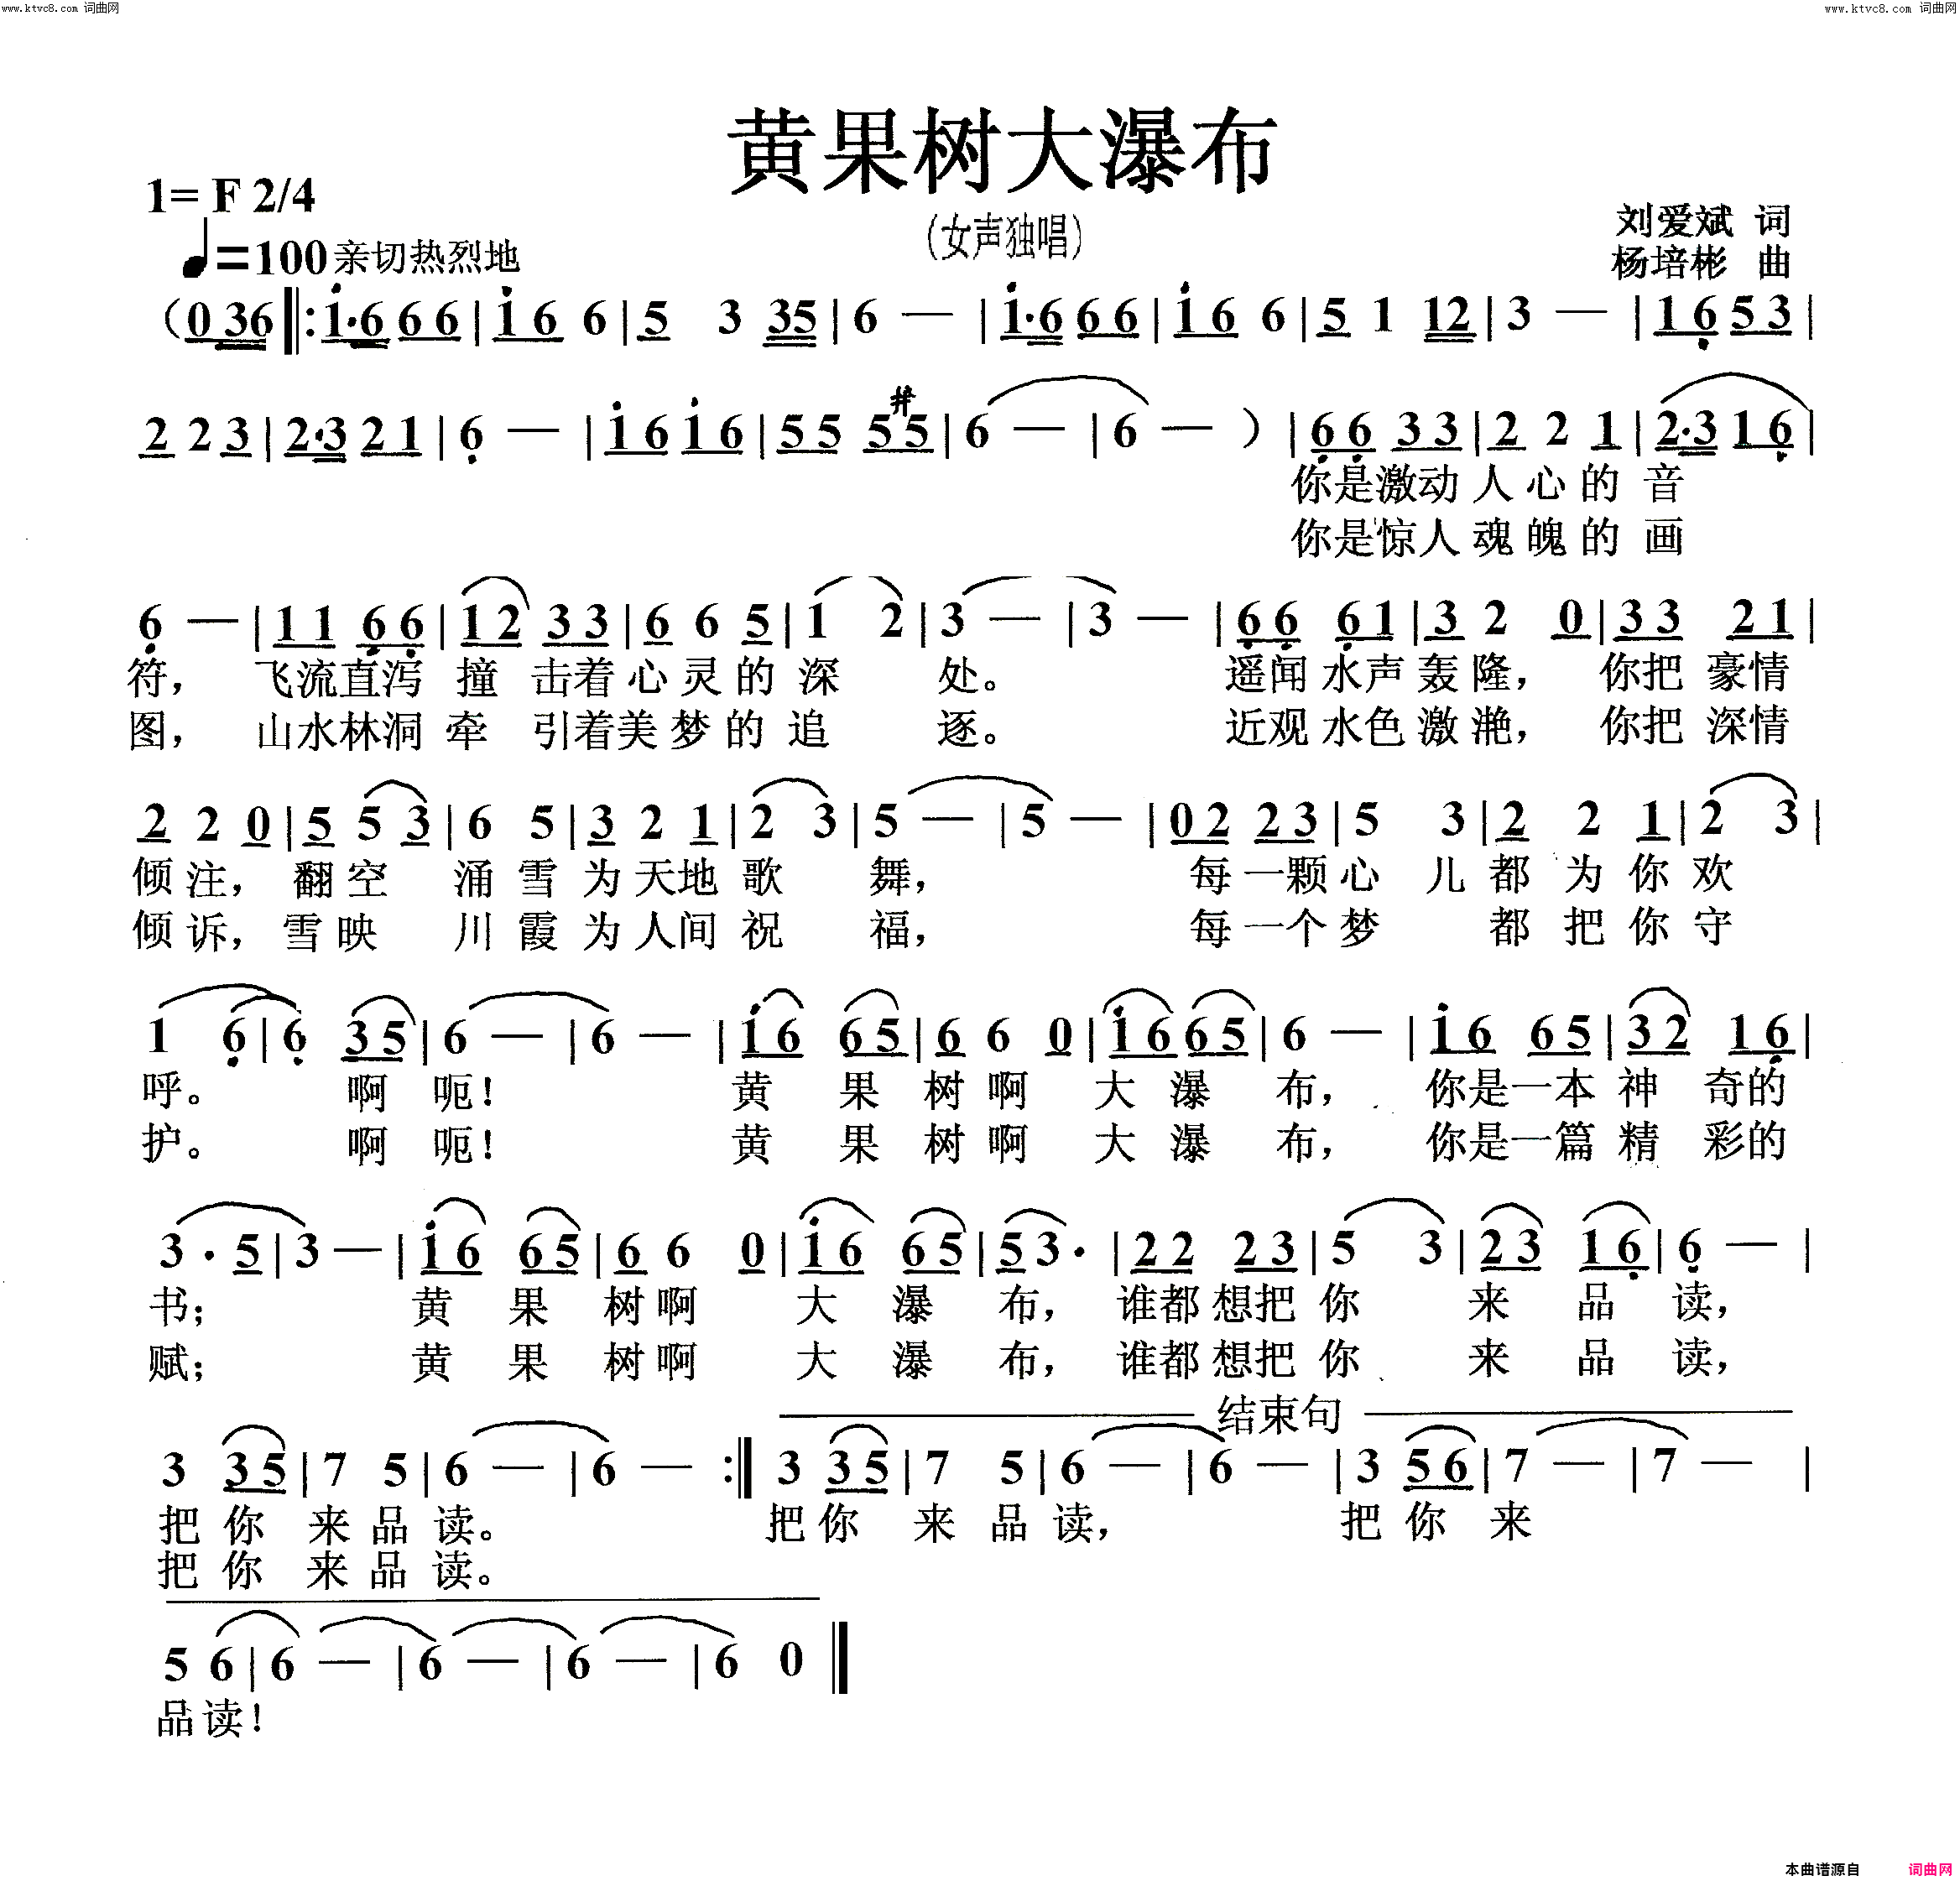 www.ktvc8.com 词曲网
www.ktvc8.com 词曲网
黄果树大瀑布
1= F 2/4
(女声独唱)
刘爱斌 词
♩=100 亲切热烈地
杨培彬 曲
(0 3 6 ‖: i· 6 6 6 | i 6 6 | 5 3 3 5 | 6 — | i· 6 6 6 | i 6 6 | 5 1 1 2 | 3 — | 1 6 5 3 |
2 2 3 | 2· 3 2 1 | 6 — | i 6 i 6 | 5 5 5 #5 | 6 — | 6 — ) | 6 6 3 3 | 2 2 1 | 2· 3 1 6 |
你是激动 人 心 的 音
你是惊人 魂 魄 的 画
6 — | 1 1 6 6 | 1 2 3 3 | 6 6 5 | 1 2 | 3 — | 3 — | 6 6 6 1 | 3 2 0 | 3 3 2 1 |
符， 飞流直泻 撞 击着 心 灵 的 深 处。 遥闻 水声 轰 隆， 你把 豪情
图， 山水林洞 牵 引着 美 梦 的 追 逐。 近观 水色 激 滟， 你把 深情
2 2 0 | 5 5 3 | 6 5 | 3 2 1 | 2 3 | 5 — | 5 — | 0 2 2 3 | 5 3 | 2 2 1 | 2 3 |
倾 注， 翻 空 涌 雪 为 天地 歌 舞， 每 一颗 心 儿 都 为 你 欢
倾 诉， 雪 映 川 霞 为 人间 祝 福， 每 一个 梦 都 把 你 守
1 6 | 6 3 5 | 6 — | 6 — | i 6 6 5 | 6 6 0 | i 6 6 5 | 6 — | i 6 6 5 | 3 2 1 6 |
呼。 啊 呃！ 黄 果 树 啊 大 瀑 布， 你是一本 神 奇的
护。 啊 呃！ 黄 果 树 啊 大 瀑 布， 你是一篇 精 彩的
3 · 5 | 3 — | i 6 6 5 | 6 6 0 | i 6 6 5 | 5 3 · | 2 2 2 3 | 5 3 | 2 3 1 6 | 6 — |
书； 黄 果 树 啊 大 瀑 布， 谁都 想把 你 来 品 读，
赋； 黄 果 树 啊 大 瀑 布， 谁都 想把 你 来 品 读，
结束句
3 3 5 | 7 5 | 6 — | 6 — :‖ 3 3 5 | 7 5 | 6 — | 6 — | 3 5 6 | 7 — | 7 — |
把 你 来 品 读。 把 你 来 品 读， 把 你 来
把 你 来 品 读。
5 6 | 6 — | 6 — | 6 — | 6 0 ‖
品 读！
本曲谱源自 词曲网